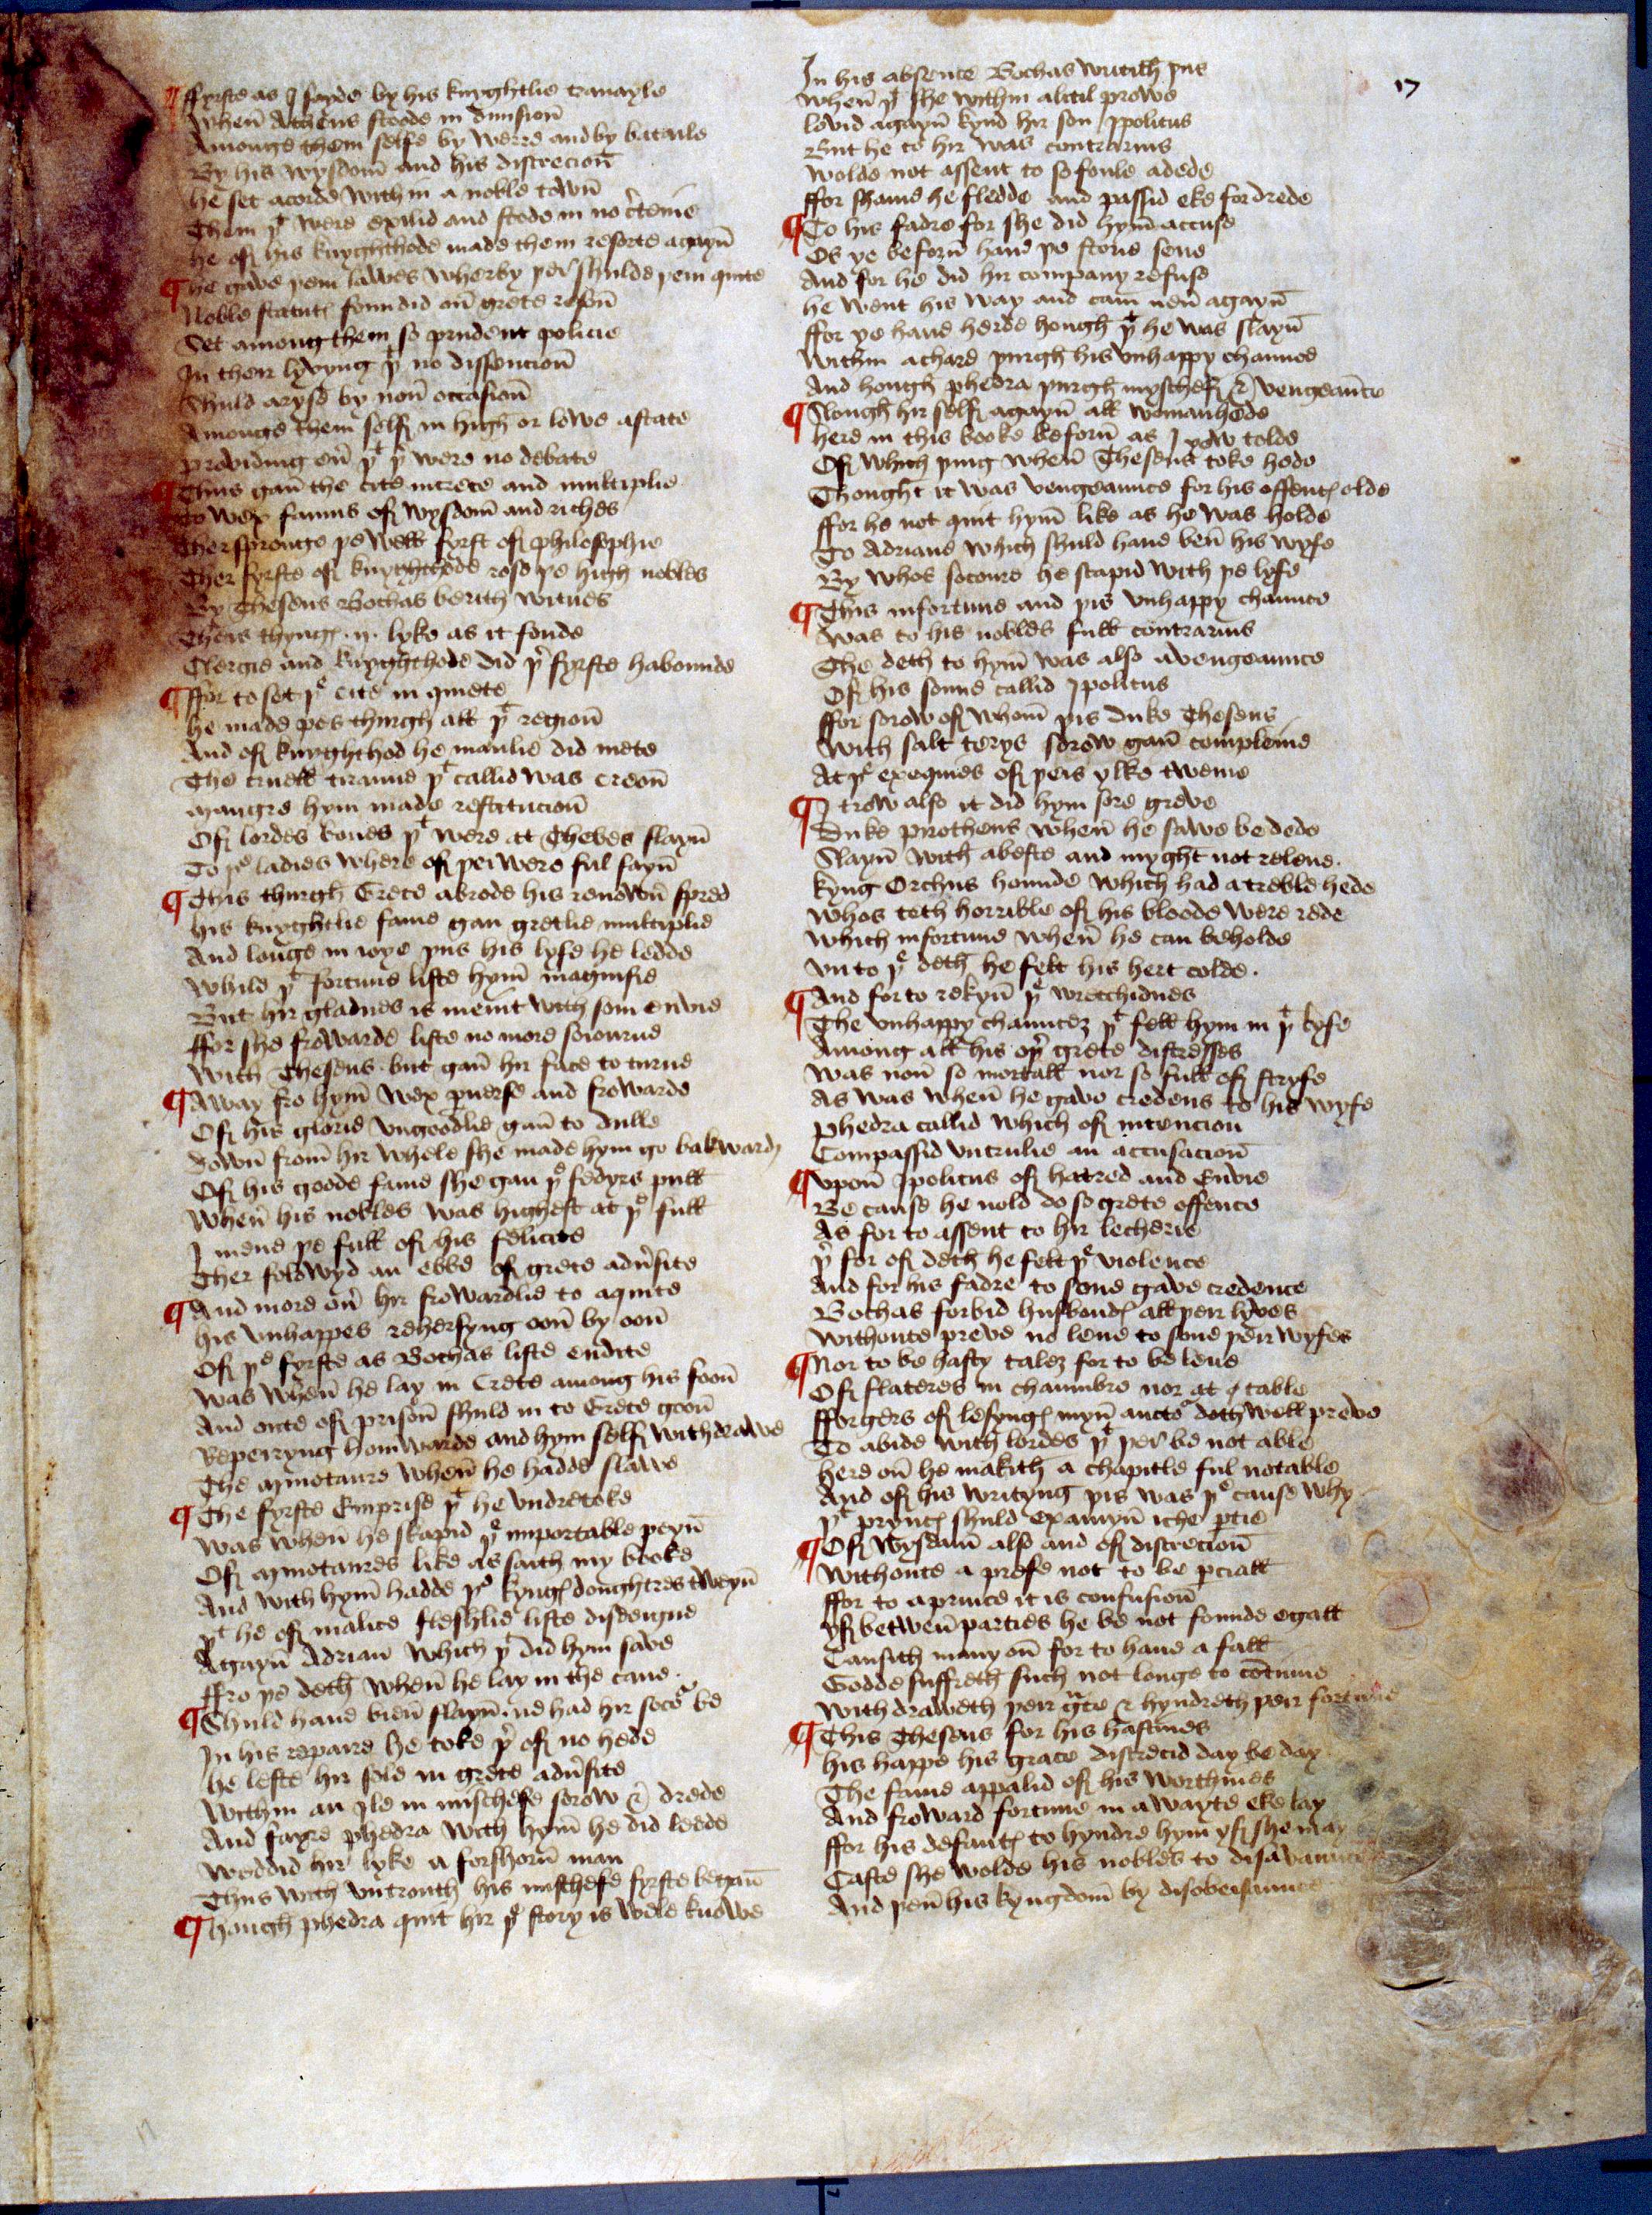 ¶ ffyrste as I sayde by his knyghtlie trauayle
When Athens stoode in diuision
Amonge them selfe by werre and by bataile
By his wysdom and his discrecion
he set acorde within a noble town
Them þt were exilid and stode in no certeine
he of his knyghthode made them resorte agayn
¶ he gave þem lawes wherby þei shulde þem quite
Noble statutes foundid on grete reson
Set among them so prudent policie
In their lyvyng þt no dissencion
Shuld aryse by non occasion
Amonge them self in high or lowe astate
Providing on þt þer were no debate
¶ Thus gan the cite increce and multiplie
To wex famus of wysdom and riches
Ther spronge þe well fyrst of philosophie
Ther fyrste of knyghthode rose þe high nobles
By Theseus Bochas berith witnes
Theis thynges .ij. lyke as it fonde
Clergie and knyghthode did þer fyrste habounde
¶ ffor to set þe cite in quiete
he made pes thurgh all þt region
And of knyghthod he manlie did mete
The cruell tiraunt þt callid was Creon
Maugre hym made restitucion
Of lordes bones þt were at Thebes slayn
To þe ladies where of þei were ful fayn
¶ This thurgh Grece abrode his renown spred
his knyghtlie fame gan gretlie multiplie
And longe in ioye þus his lyfe he ledde
While þt fortune liste hym magnifie
But hir gladnes is meint with som envie
ffor she frowarde liste no more soiourne
With Theseus but gan hir face to turne
¶ Away fro hym wex peruerse and frowarde
Of his glorie vngoodlie gan to dulle
Down from hir whele she made hym go bakwardes
Of his goode fame she gan þe fedyrs pull
When his nobles was highest at þe full
I mene þe full of his felicite
Ther folowyd an ebbe of grete aduersite
¶ And more on hir frowardlie to aquite
his vnhappes rehersyng oon by oon
Of þe fyrste as Bochas liste endite
Was when he lay in Crete among his foon
And onte of prison shuld in to Grece goon
Repeiryng homwarde and hym self withdrawe
The Mynotaure when he hadde slawe
¶ The fyrste Emprise þt he vndretoke
Was when he skapid þe importable peyn
Of Mynotaures like as saith my booke
And with hym hadde þe kynges doughtres tweyn
þt he of malice fleshlie liste disdeigne
Agayn Adrian which þt did hym save
ffro þe deth when he lay in the caue
¶ Shuld haue bien slayn ne had hir socor be
In his repaire he toke þer of no hede
he lefte hir sole in grete aduersite
Within an Ile in mischefe sorow & drede
And fayre Phedra with hym he did leede
Weddid hir lyke a forshorn man
Thus with vntrouth his mischefe fyrste began
¶ hough phedra quit hir þe story is wele knowe
17
In his absence Bochas writith þus
When þt she within a litil prowe
lovid agayn kynd hir son Ipolitus
But he to hir was contrarius
Wolde not assent to so foule a dede
ffor shame he fledde and passid eke for drede
¶ To his fadre for she did hym accuse
Os ye beforn haue þe storie sene
And for he did hir company refuse
he went his way and cam nen agayn
ffor ye haue herde hough þt he was slayn
Within a chare þurgh his vnhappy chaunce
And hough phedra þurgh myschef & vengeaunce
¶ Slough hir self agayn all womanhede
here in this booke beforn as I yow tolde
Of which þing when Theseus toke hede
Thought it was vengeaunce for his offence olde
ffor he not quit hym like as he was holde
To Adriane which shuld haue ben his wyfe
By whos socoure he scapid with þe lyfe
¶ This infortune and þis vnhappy chaunce
Was to his nobles full contrarius
The deth to hym was also a vengeaunce
Of his sonne callid Ipolitus
ffor sorow of whom þis duke Theseus
With salt terys sorow gan compleine
At þe exequies of þeis ylke tweine
¶ I trow also it did hym sore greve
Duke Pirotheus when he sawe be dede
Slayn with a beste and myght not releue
kyng Orchus hounde which had a treble hede
Whos teth horrible of his bloode were rede
Which infortune when he can beholde
vnto þe deth he felt his hert colde
¶ And for to rekyn þe wretchidnes
The vnhappy chauncez þt fell hym in þt lyfe
Among all his oþer grete distresses
Was non so mortall nor so full of stryfe
As was when he gave credens to his wyfe
Phedra callid which of intencion
Compassid vntrulie an accusacion
¶ Vpon Ipolitus of hatred and Envie
Be cause he nold do so grete offence
As for to assent to hir lecherie
þer for of deth he felt þe violence
And for his fadre to sone gave credence
Bochas forbid husbondes all þeir lyves
Withoute preve ne leue to sone þeir wyfes
¶ Nor to be hasty talez for to beleue
Of flateres in chaumbre nor at table
fforgers of lesynges myn auctor doth well preve
To abide with lordes þt þei be not able
here on he makith a chapitle ful notable
And of his writyng þis was þe cause why
þt prynces shuld examyn iche partie
¶ Of wysdam also and of discrecion
Withoute a prefe not to be parciall
ffor to a prince it is confusion
yf betwen parties he be not founde egall
Causith many on for to haue a fall
Godde suffreth such not longe to contune
With draweth þeir grace & hyndreth þeir fortune
¶ This Theseus for his hastines
his happe his grace discrecid day be day
The fame appalid of his worthines
And froward fortune in a wayte eke lay
ffor his defautes to hyndre hym yf she may
Caste she wolde his nobles to disavaunce
And þen his kyngdom by disobeisaunce